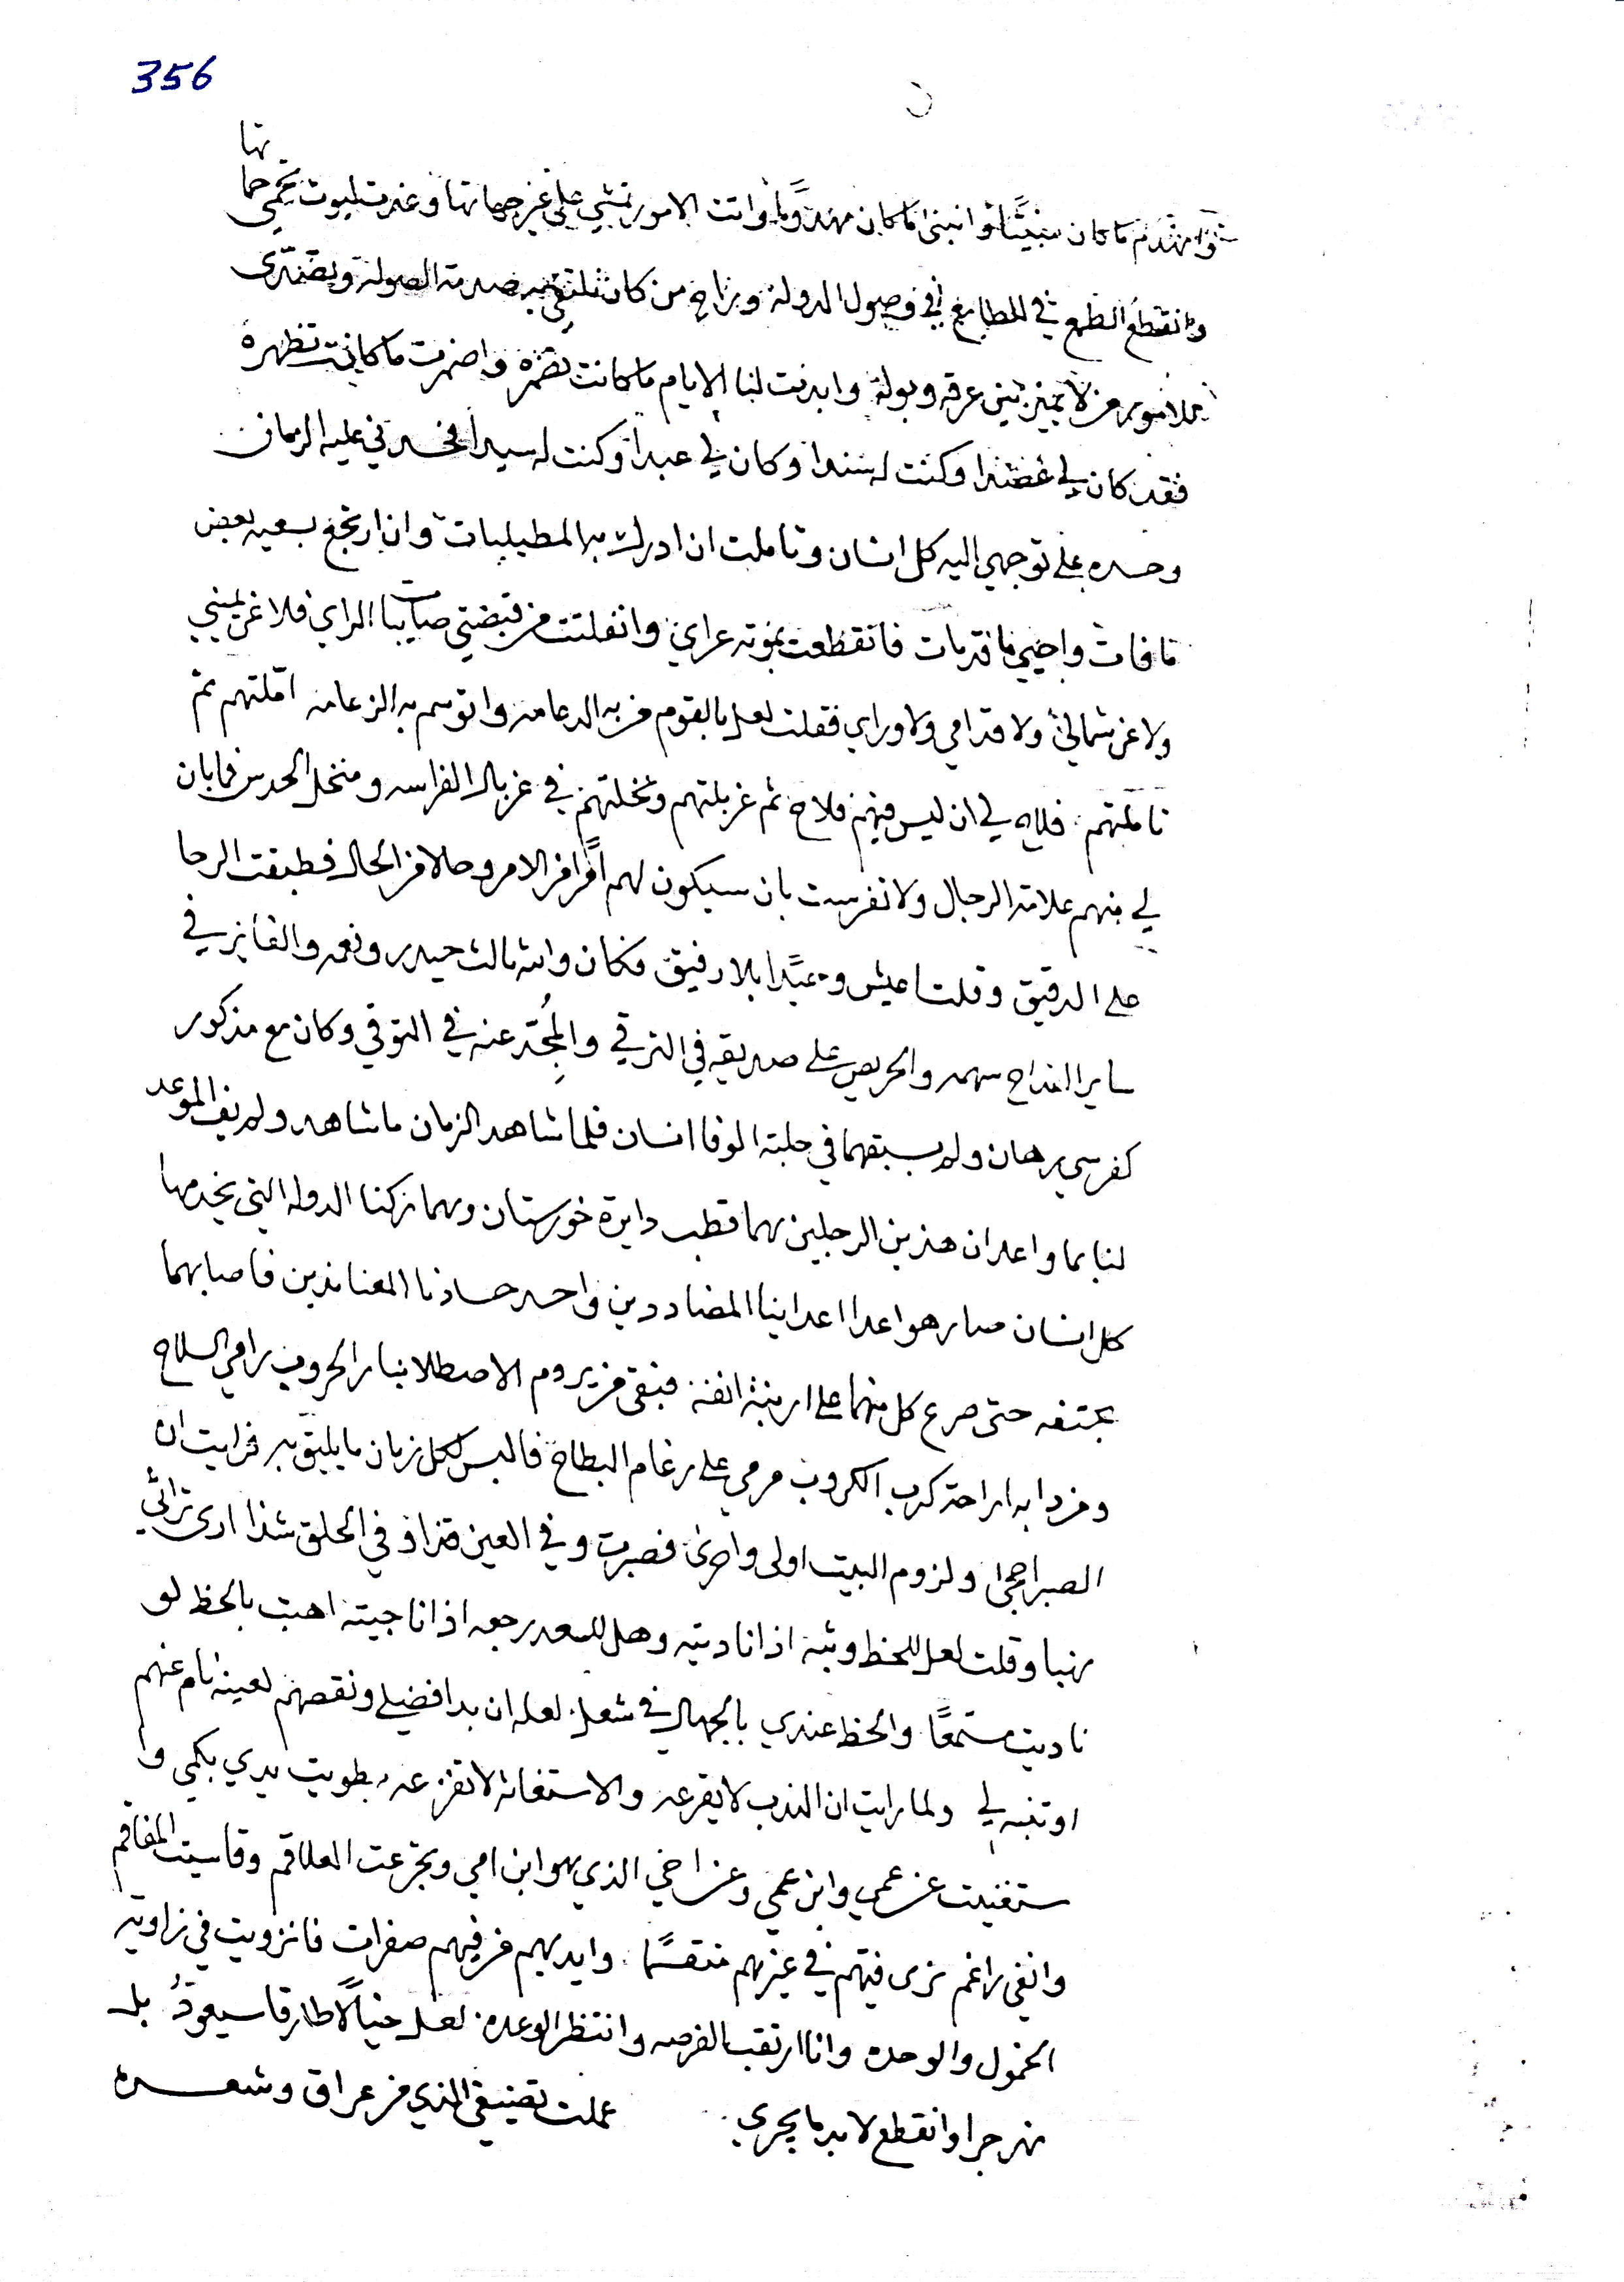 356
تها
وانهدم ما كان مبنيًّا وانبنى ما كان مهدومًا واتت الامور تمشي على غير جهاتها وغدت ليوث تحمي حما
وانقطع الطمع في المطابع في وصول الدولة وراح من كان نلتقي به صدمة الصولة ويتصدى
للامور من لا يميز بين عرقه وبوله وابدت لنا الايام ما كانت تضمره واضمرت ما كانت تظهره
فقد كان لي عضدا وكنت له سندا وكان لي عبدا وكنت له سيدا فحسدني عليه الزمان
وحسده على توجهي اليه كل انسان وتاملت ان ادرك به المطيلبات وان ارتجع بسعيه بعض
ما فات واحيي ما قد مات فانقطعت بموته عراي وانفلتت من قبضتي صايبات الراي فلا عن يميني
ولا عن شمالي ولا قدامي ولا وراي فقلت لعل بالقوم من به الدعامه واتوسم به الزعامه اقلتهم ثم
تاملتهم فلاح لي ان ليس فيهم فلاح ثم غربلتهم ونخلتهم في غربال الفراسه ومنخل الحدس فما بان
لي منهم علامة الرجال ولا تفرست بان سيكون لهم امرًا من الامر وحالا من الحال فطبقت الرحا
على الدقيق وقلت اعيش وحيدًا بلا رفيق فكان والله ثالث حيدر ونعمه والفايز في
ساير القداح سهمه والحريص على صديقه في الترقي والمجد عنه في التوقي وكان مع مذكور
كفرسي رهان ولم يسبقهما في حلبة الوفا انسان فلما شاهد الزمان ما شاهد ولم يف الموعد
لنا بما واعد ان هذين الرجلين هما قطب دايرة خوزستان وهما ركنا الدوله التي يخدمها
كل انسان صار هو اعدا اعداينا المضاددين واحسد حسادنا المعناندين فاصابهما
بحتفه حتى صرع كل منهما على ارنبة انفه فبقى من يروم الاصطلا بنار الحروب رامي السلاح
ومن دابه اراحة كرب الكروب مرمي على رغام البطاح فالبس لكل زمان ما يليق به فرايت ان
الصبر احجى ولزوم البيت اولى واحرى فصبرت وفي العين قذا وفي الحلق شذا ارى تراثي
نهبا وقلت لعل للحظ وثبه اذا ناديته وهل للسعد رجعه اذا ناجيته اهبت بالحظ لو
ناديت مستمعًا والحظ عندي بالجهال في شغل لعله ان بدا فضلي ونقصهم لعينه نام عنهم
او تنبه لي ولما رايت ان الندب لا يقرعه والاستغاثه لا تفزعه طويت يدي بكمي وا
ستغنيت عن عمي وابن عمي وعن اخي الذي هو ابن امي وتجرعت العلاقم وقاسيت المفاقم
وانفي راغم نرى فيئهم في غيرهم منقسمًا وايديهم من فيهم صفرات فانزويت في زاوية
الخمول والوحده وانا ارتقب الفرصه وانتظر الوعده لعل خيالًا طارقا سيعودُ بل
نهر جرا وانقطع لا بد ما يجري عملت تصنيفي الذي من عراق وشعره